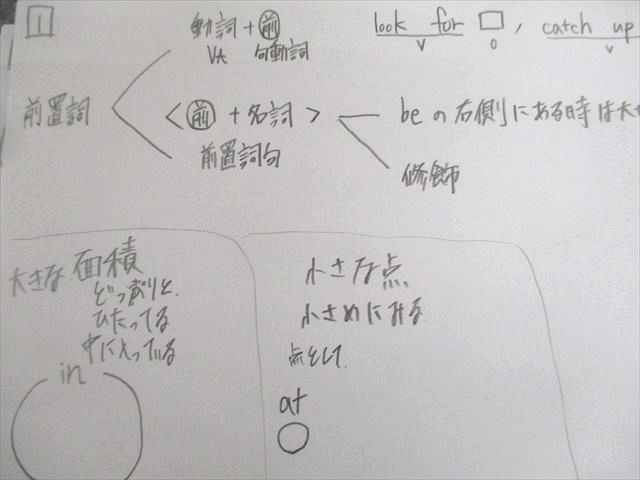 1
動詞+前 look for □, catch up
Vt 句動詞 V O V
前置詞 <前+名詞> beの右側にある時は大
前置詞句 修飾
大きな面積
どっぷりと
ひたってる
中に入っている
in
小さな点
小さめにみる
点として
at